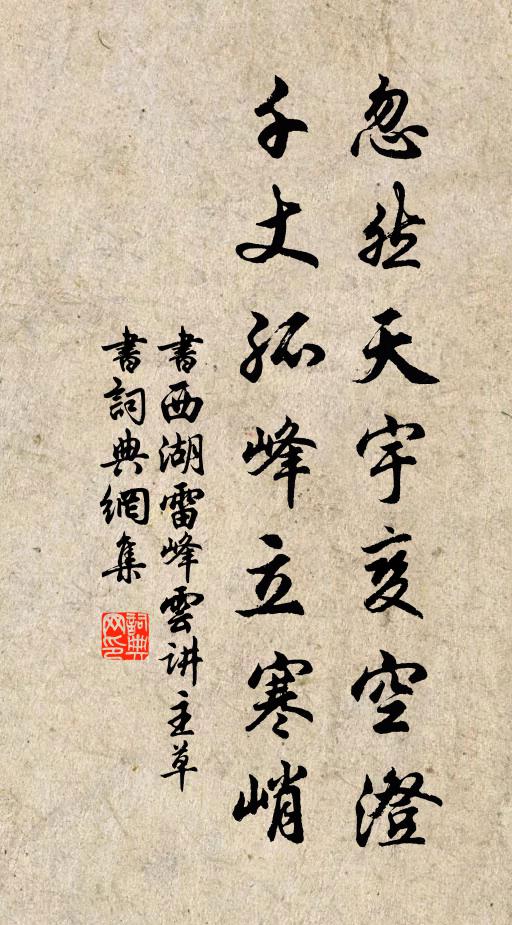 忽然天宇变空澄
千丈孤峰立寒峭
書西湖雷峰雲讲主草
書詞典網集
詞典网印